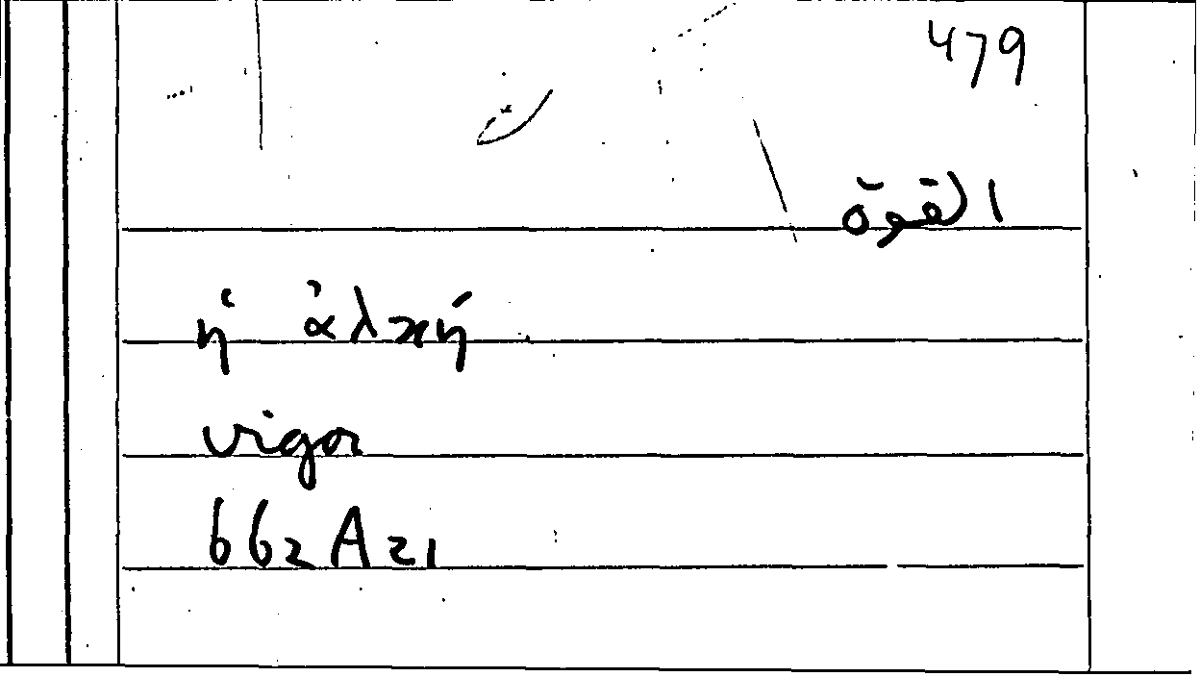 479
القوّة
ἡ ἀλκή
vigor
662 A 21